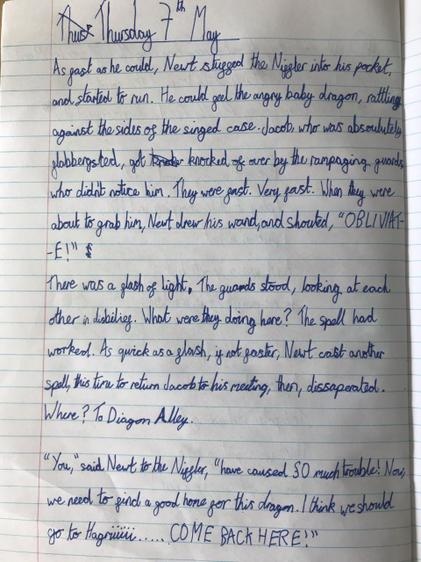 Thurs Thursday 7th May
As fast as he could, Newt stuffed the Niffler into his pocket,
and started to run. He could feel the angry baby dragon, rattling
against the sides of the singed case. Jacob, who was absoulutely
flabbergasted, got knocked of over by the rampaging guards
who didn't notice him. They were fast. Very fast. When they were
about to grab him, Newt drew his wand, and shouted, "OBLIVIAT-
-E!"
There was a flash of light. The guards stood, looking at each
other in disbilief. What were they doing here? The spell had
worked. As quick as a flash, if not faster, Newt cast another
spell, this time to return Jacob to his meeting, then, dissaparated.
Where? To Diagon Alley.
"You," said Newt to the Niffler, "have caused SO much trouble! Now,
we need to find a good home for this dragon. I think we should
go to Hagriiiiii..... COME BACK HERE!"